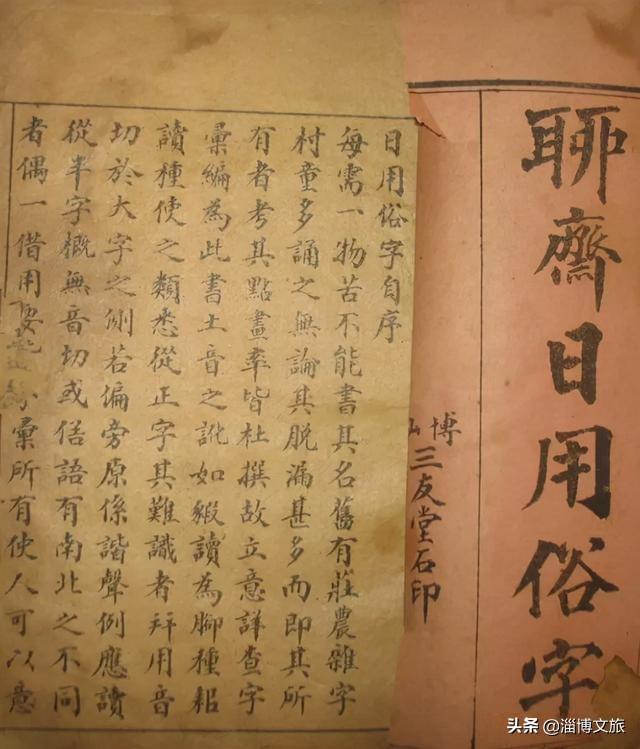 聊齋日用俗字
博山
三友堂石印
日用俗字自序
每需一物苦不能書其名舊有莊農雜字
村童多誦之無論其脱漏甚多而即其所
有者考其點畫率皆杜撰故立意詳查字
彙編為此書土音之訛如豭讀為脚種耜
讀種使之類悉從正字其難識者并用音
切於大字之側若偏旁原係諧聲例應讀
從半字概無音切或俗語有南北之不同
者偶一借用要彙所有使人可以意
头条 @淄博文旅